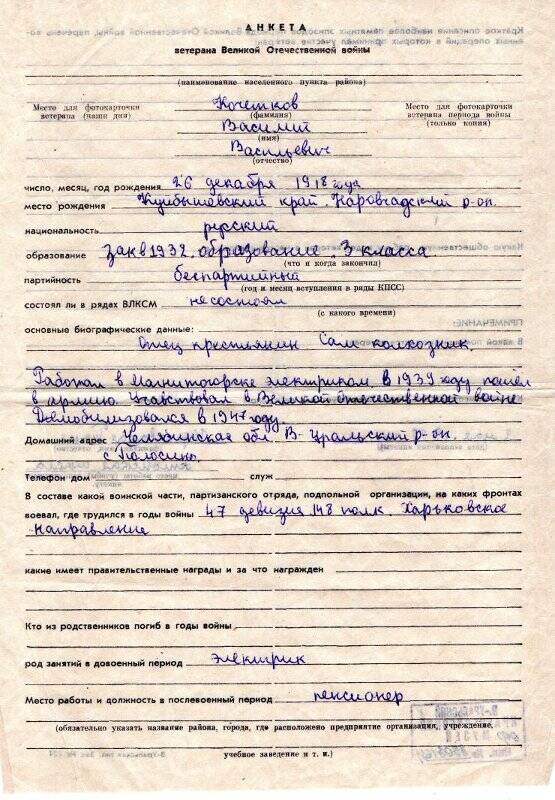 АНКЕТА
ветерана Великой Отечественной войны
(наименование населенного пункта района)
Место для фотокарточки
ветерана (наши дни)
Кочетков
(фамилия)
Василий
(имя)
Васильевич
(отчество)
Место для фотокарточки
ветерана периода войны
(только копия)
число, месяц, год рождения 26 декабря 1918 года
место рождения Куйбышевский край. Наровчадский р-он.
национальность русский
образование зак в 1932. образование 3 класса
(что и когда закончил)
партийность беспартийный
(год и месяц вступления в ряды КПСС)
состоял ли в рядах ВЛКСМ несостоял
(с какого времени)
основные биографические данные:
Отец крестьянин Сам колхозник.
Работал в Магнитогорске электриком. В 1939 году пошёл
в армию. Учавствовал в Великой Отечественной войне
Демобилизовался в 1947 году.
Домашний адрес Челябинская обл В-Уральский р-он.
с
Телефон дом служ
В составе какой воинской части, партизанского отряда, подпольной организации, на каких фронтах
воевал, где трудился в годы войны 47 девизия 148 полк. Харьковское
направление
какие имеет правительственные награды и за что награжден
Кто из родственников погиб в годы войны
род занятий в довоенный период электрик
Место работы и должность в послевоенный период пенсионер
(обязательно указать название района, города, где расположено предприятие организация, учреждение,
учебное заведение и т. п.)